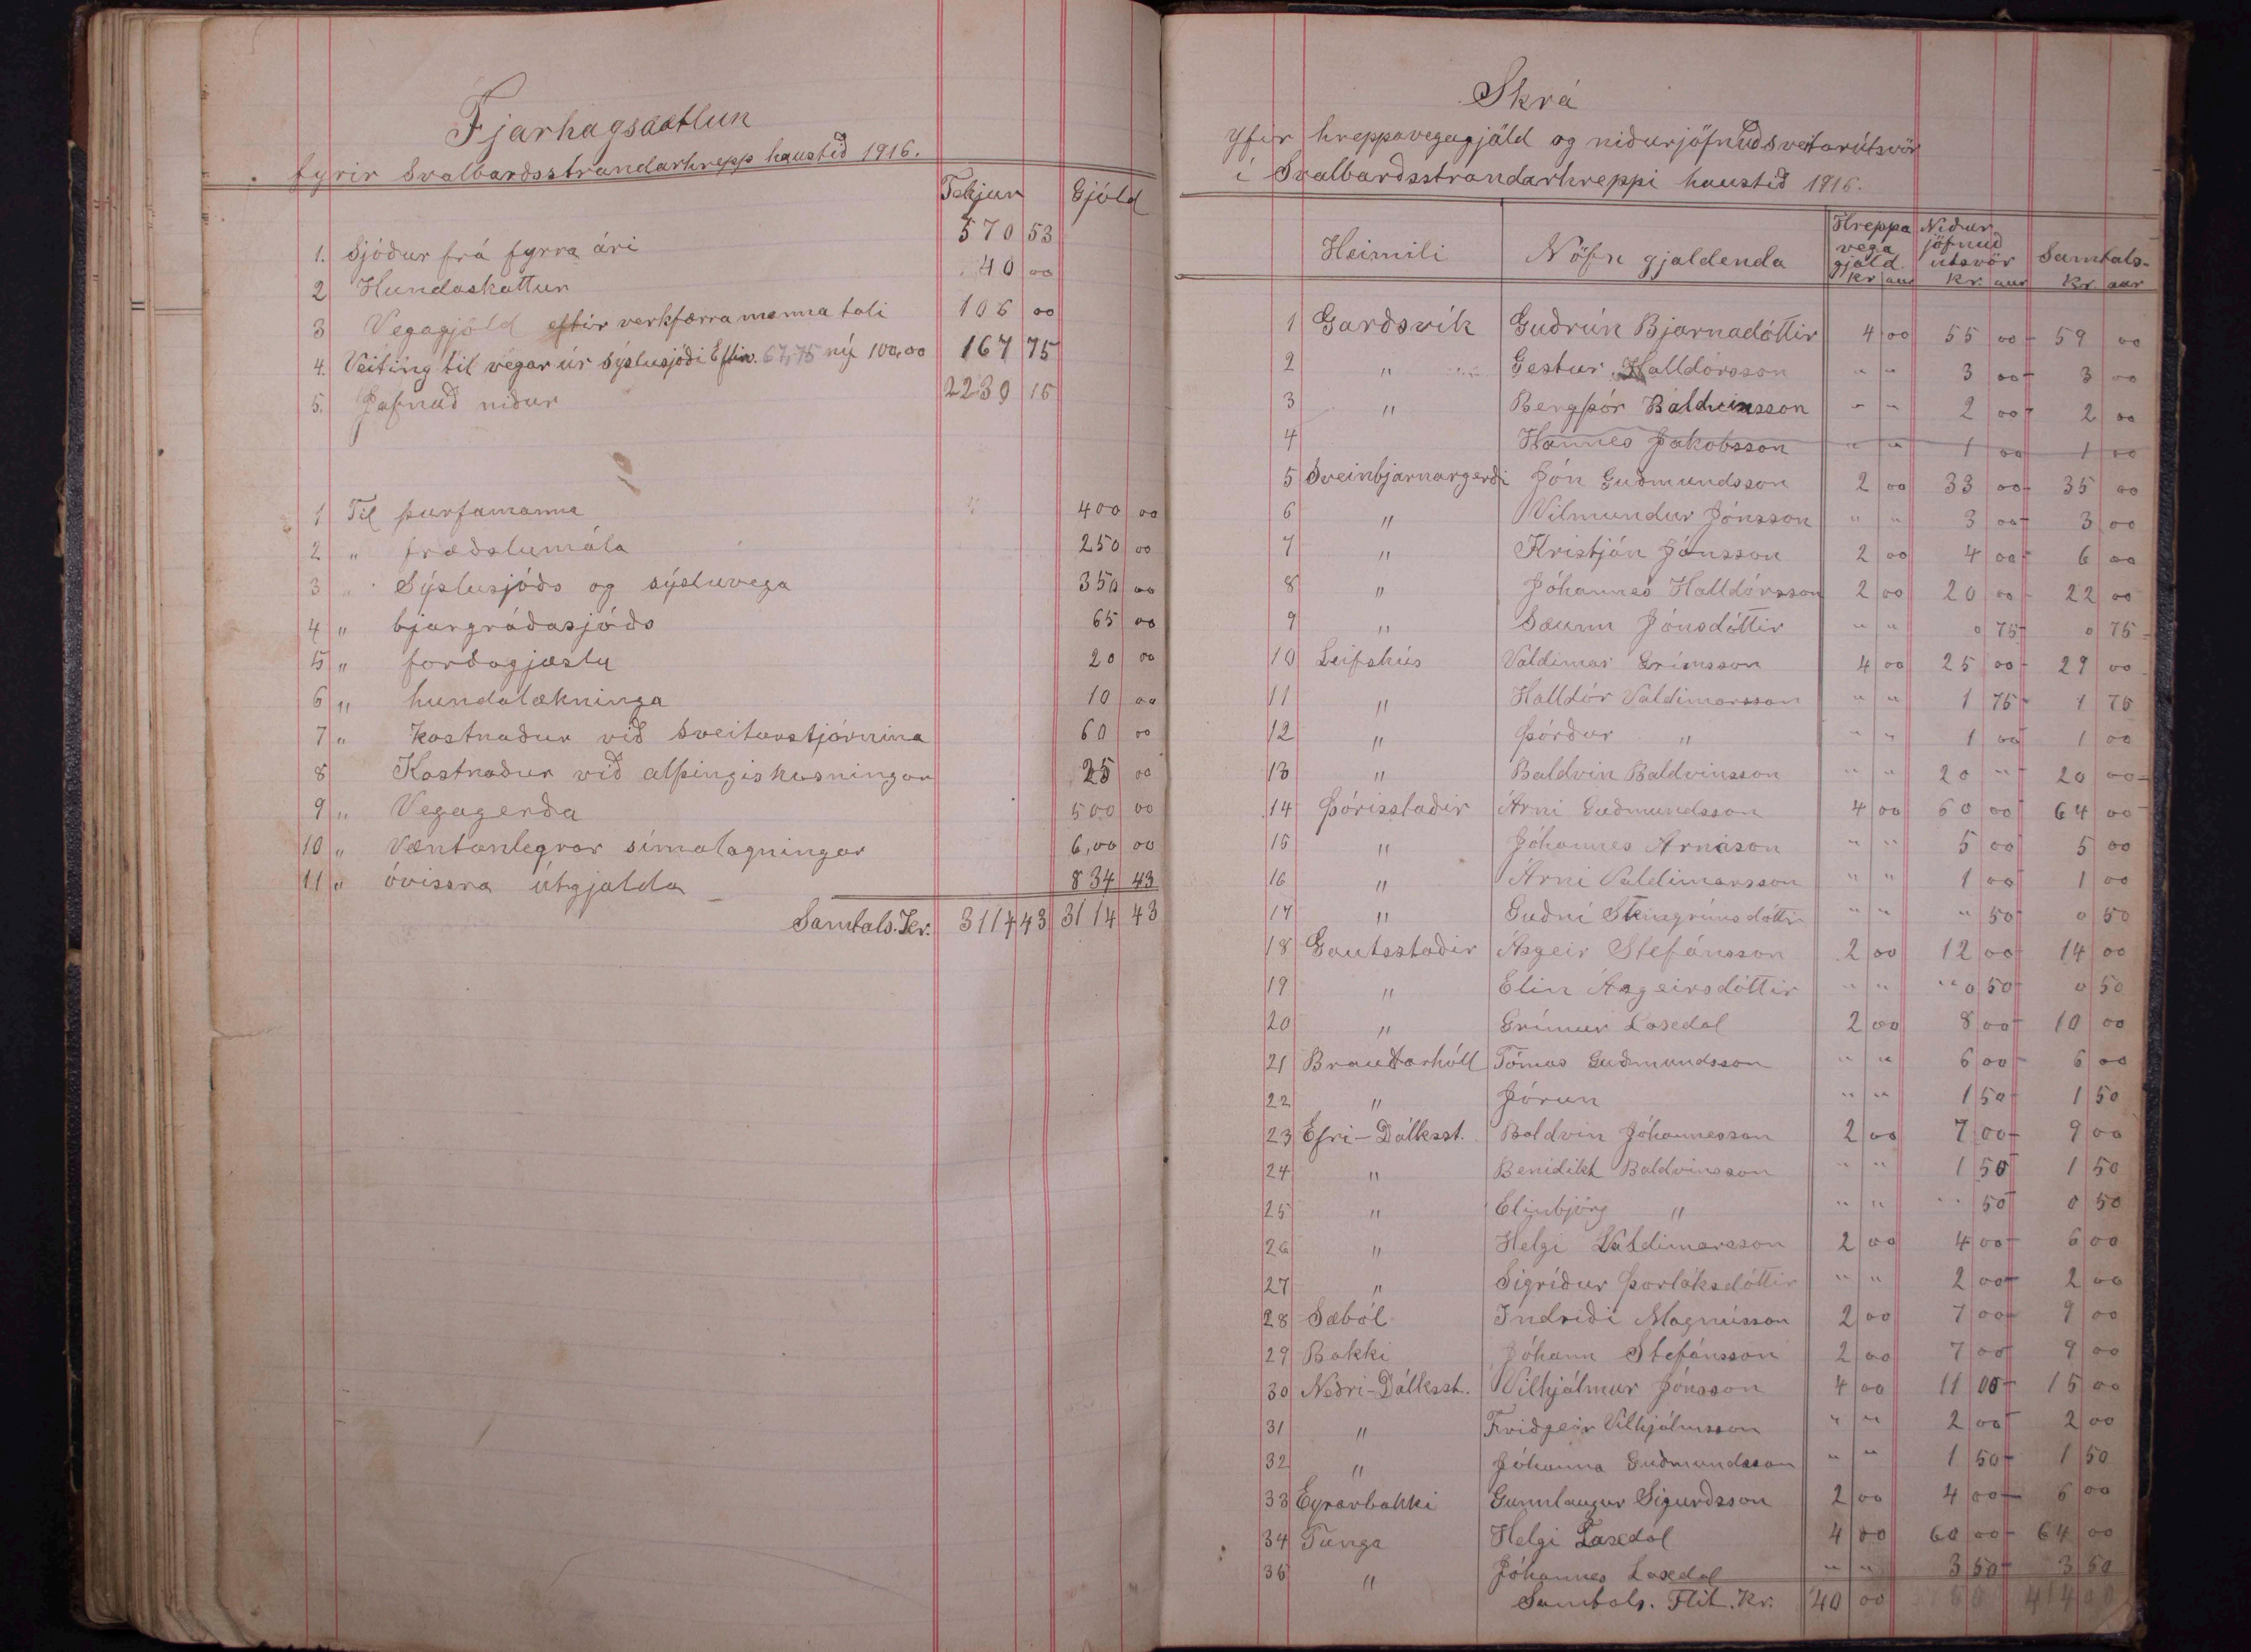 Fjarhagsáætlun
fyrir Svalbarðsstrandarhrepp haustið 1916.
Tekjur Gjöld
1. Sjóður frá fyrra ári 570 53
2 Hundaskattur 40 00
3 Vegagjöld eftir verkfærra manna tali 106 00
4. Veiting til vegar úr sýslusjóði Eftir. 67,75 ný 100,00 167 75
5. Jafnað niður 2230 15
1 Til þurfamanna 400 00
2 " fræðslumála 250 00
3 " Sýslusjóðs og sýsluvega 350 00
4 " bjargráðasjóðs 65 00
5 " forðagjæslu 20 00
6 " hundalækninga 10 00
7 " Kostnaður við sveitarstjórnina 60 00
8 Kostnaður við alþingiskosningar 25 00
9 " Vegagerða 500 00
10 " Væntanlegrar símalagningar 6,00 00
11 " óvissra útgjalda 834 43
Samtals. Kr. 3114 43 3114 43
Skrá
yfir hreppavegagjöld og niðurjöfnuð sveitarútsvör
í Svalbarðsstrandarhreppi haustið 1916.
Heimili Nöfn gjaldenda Hreppa vega gjöld. kr aur Niður jöfnuð útsvör kr. aur Samtals- kr aur
1 Garðsvík Guðrún Bjarnadóttir 4 00 55 00 - 59 00
2 " Gestur Halldórsson " " 3 00 - 3 00
3 " Bergþór Baldvinsson " " 2 00 - 2 00
4 Hannes Jakobsson " " 1 00 1 00
5 Sveinbjarnargerði Jón Guðmundsson 2 00 33 00 - 35 00
6 " Vilmundur Jónsson " " 3 00 - 3 00
7 " Kristján Jónsson 2 00 4 00 - 6 00
8 " Jóhannes Halldórsson 2 00 20 00 - 22 00
9 " Sæunn Jónsdóttir " " 0 75 - 0 75
10 Leifshús Valdimar Grímsson 4 00 25 00 - 29 00
11 " Halldór Valdimarsson " " 1 75 - 1 75
12 " Þórður " " " 1 00 1 00
13 " Baldvin Baldvinsson " " 20 " - 20 00 -
14 Þórisstaðir Árni Guðmundsson 4 00 60 00 64 00
15 " Jóhannes Árnason " " 5 00 5 00
16 " Árni Valdimarsson " " 1 00 1 00
17 " Guðní Steingrímsdóttir " " " 50 0 50
18 Gautsstaðir Ásgeir Stefánsson 2 00 12 00 - 14 00
19 " Elin Ásgeirsdóttir " " " 0 50 - 0 50
20 " Grímur Laxdal 2 00 8 00 - 10 00
21 Brautarhóll Tómas Guðmundsson " " 6 00 - 6 00
22 " Þórun " " 1 50 - 1 50
23 Efri-Dálksst. Baldvin Jóhannesson 2 00 7 00 - 9 00
24 " Benidikt Baldvinsson " " 1 50 1 50
25 " Elinbjörg " " " " 50 0 50
26 " Helgi Valdimarsson 2 00 4 00 - 6 00
27 " Sigríður Þorláksdóttir " " 2 00 - 2 00
28 Sæból Indriði Magnússon 2 00 7 00 - 9 00
29 Bakki Jóhann Stefánsson 2 00 7 00 9 00
30 Neðri-Dálksst. Vilhjálmur Jónsson 4 00 11 00 - 15 00
31 " Friðgeir Vilhjálmsson " " 2 00 - 2 00
32 " Jóhanna Guðmundsson " " 1 50 - 1 50
33 Eyrarbakki Gunnlaugur Sigurðsson 2 00 4 00 - 6 00
34 Tunga Helgi Laxdal 4 00 60 00 - 64 00
35 " Jóhannes Laxdal " " 3 50 - 3 50
Samtals. Flit. Kr. 40 00